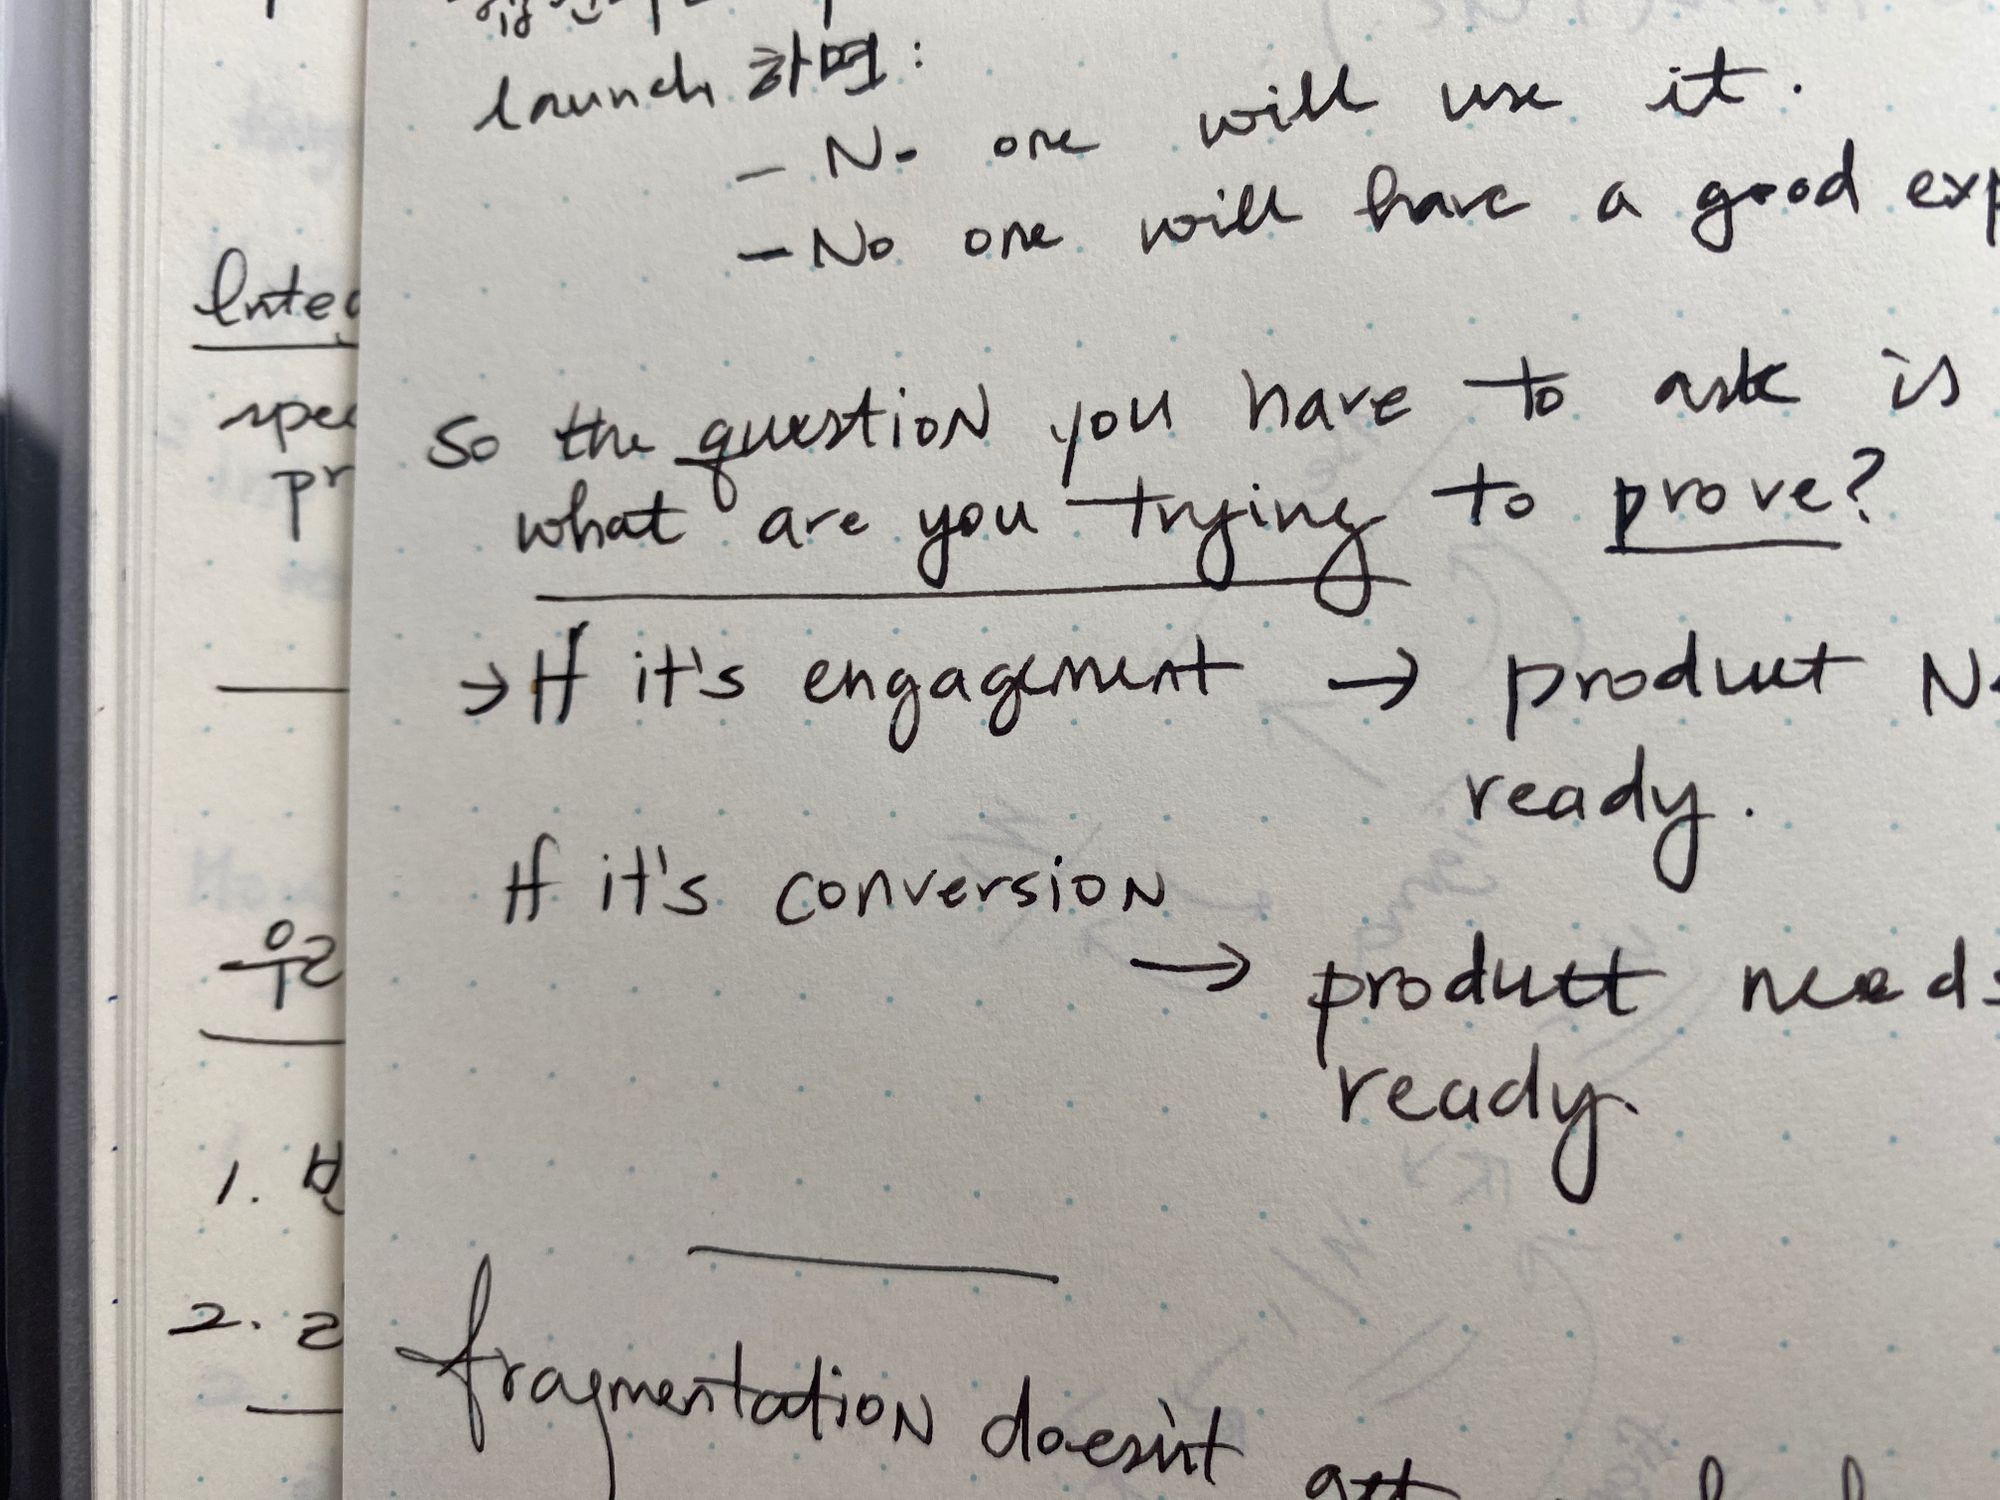 launch 하면:
- No one will use it.
- No one will have a good exp
So the question you have to ask is
what are you trying to prove?
→ If it's engagement → product N
ready.
If it's conversion
→ product needs
ready.
fragmentation doesn't get
Integ
spec
pr
우리
1. 번
2.